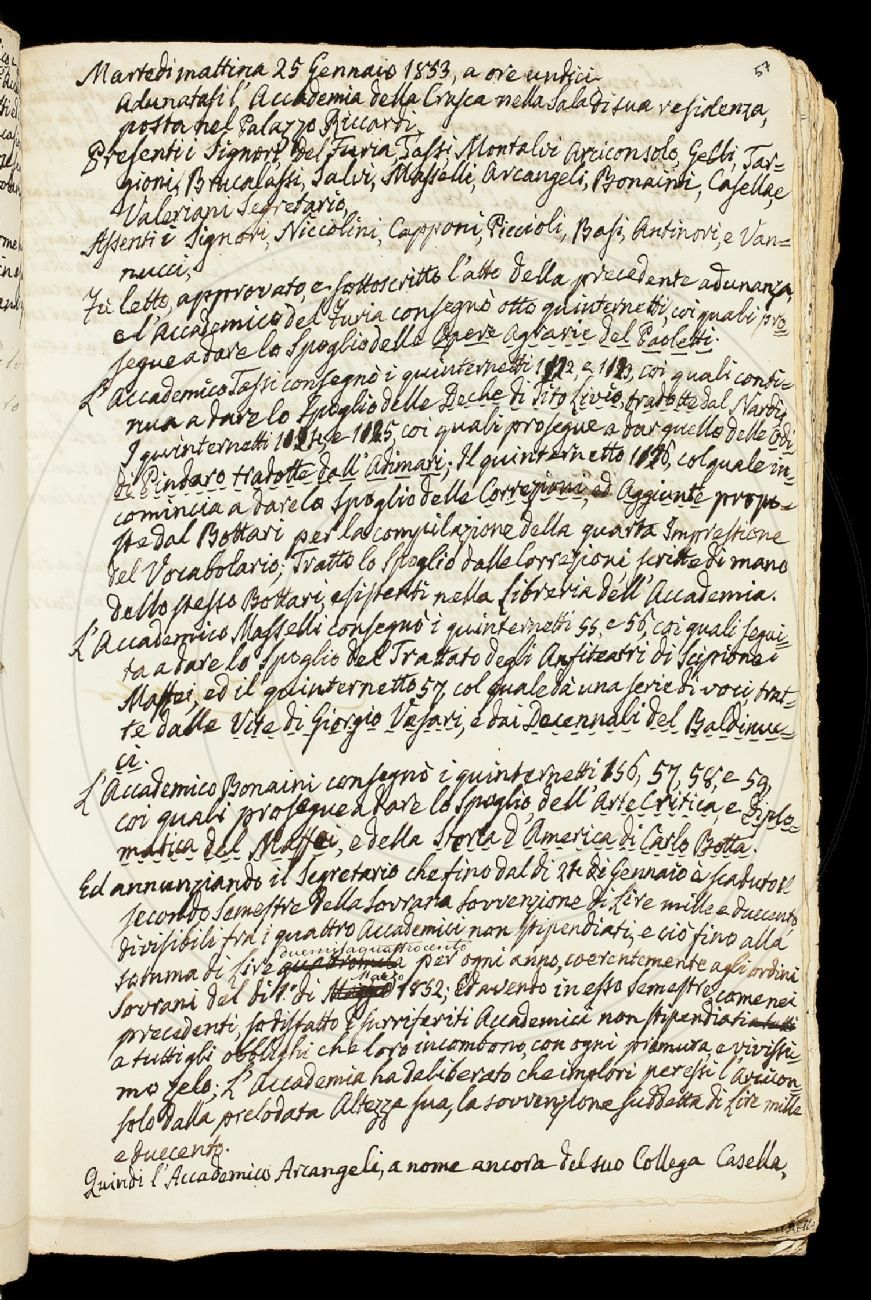 57
Martedi mattina 25 Gennaio 1853, a ore undici
Adunatasi l'Accademia della Crusca nella Sala di sua residenza,
posta nel Palazzo Riccardi,
Presenti i Signori, Del Furia, Tassi, Montalvi Arciconsolo, Gelli, Tar=
gioni, Brucalassi, Salvi, Masselli, Arcangeli, Bonaini, Casella, e
Valeriani Segretario,
Assenti i Signori, Niccolini, Capponi, Piccioli, Basi, Antinori, e Van=
nucci,
Fù letto, approvato, e sottoscritto l'atto della precedente adunanza,
e l'Accademico del Furia consegnò otto quinternetti, coi quali pro
segue a dare lo Spoglio delle Opere Agrarie del Paoletti.
L'Accademico Tassi consegnò i quinternetti 1122, e 1123, coi quali conti=
nua a dare lo Spoglio delle Deche di Tito Livio, tradotte dal Nardi;
I quinternetti 1124, e 1125, coi quali prosegue a dar quello delle Odi
di Pindaro tradotte dall'Adimari; Il quinternetto 1126, col quale in=
comincia a dare lo Spoglio delle Correzioni, ed Aggiunte propo=
ste dal Bottari per la compilazione della quarta Impressione
del Vocabolario; Tratto lo Spoglio dalle Correzioni scritte di mano
dello stesso Bottari, esistenti nella Libreria dell'Accademia.
L'Accademico Masselli consegnò i quinternetti 55, e 56, coi quali segui=
ta a dare lo Spoglio del Trattato degli Anfiteatri di Scipione
Maffei, ed il quinternetto 57, col quale dà una serie di voci, trat=
te dalle Vite di Giorgio Vasari, e dai Decennali del Baldinuc=
ci.
L'Accademico Bonaini consegnò i quinternetti 156, 57, 58, e 59,
coi quali prosegue a dare lo Spoglio dell'Arte Critica, e Diplo=
matica del Maffei, e della Storia d'America di Carlo Botta.
Ed annunziando il Segretario che fino dal dì 21. di Gennaio è scaduto il
secondo Semestre della Sovrana Sovvenzione di Lire mille e duecento
divisibili fra i quattro Accademici non stipendiati, e ciò fino alla
duemilaquattrocento
somma di Lire quattromila per ogni anno, coerentemente agli ordini
Marzo
Sovrani del dì 1.° di 1852; Ed avendo in esso Semestre, come nei
precedenti, sodisfatto i surriferiti Accademici non stipendiati a tutti
a tutti gli obblighi che loro incombono, con ogni premura, e vivissi=
mo zelo; L'Accademia ha deliberato che implori per essi l'Arcicon=
solo dalla prelodata Altezza sua, la sovvenzione suddetta di Lire mille
e duecento.
Quindi l'Accademico Arcangeli, a nome ancora del suo Collega Casella,